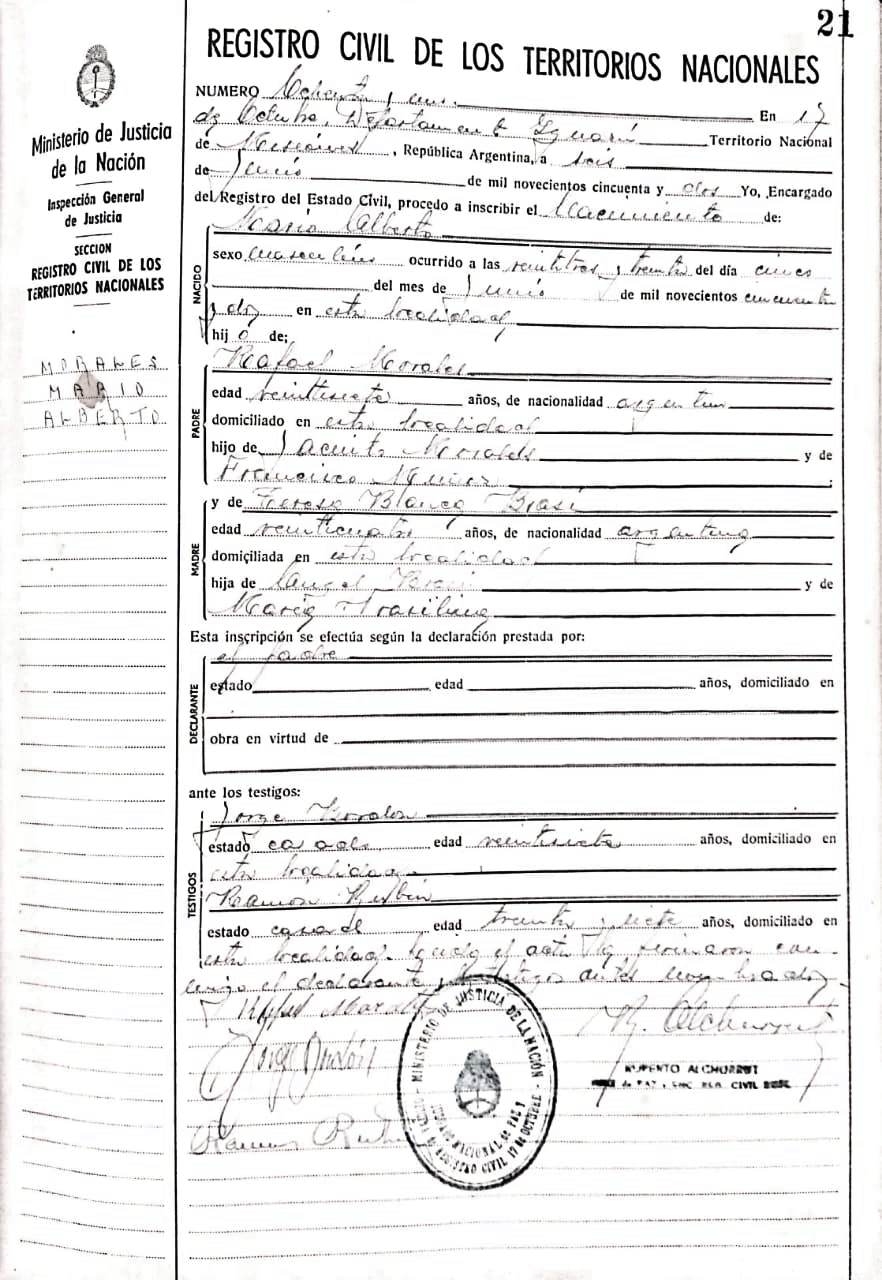 21
REGISTRO CIVIL DE LOS TERRITORIOS NACIONALES
Ministerio de Justicia
de la Nación
Inspección General
de Justicia
SECCION
REGISTRO CIVIL DE LOS
TERRITORIOS NACIONALES
MORALES
MARIO
ALBERTO
NUMERO Ochenta y uno. En 17
de Octubre, Departamento Iguazú Territorio Nacional
de Misiones, República Argentina, a seis
de Junio de mil novecientos cincuenta y dos Yo, Encargado
del Registro del Estado Civil, procedo a inscribir el Nacimiento de:
Mario Alberto
NACIDO
sexo masculino ocurrido a las veintitres y treinta del día cinco
del mes de Junio de mil novecientos cincuenta
y dos en esta localidad
hijo de;
Rafael Morales
PADRE
edad veintisiete años, de nacionalidad argentina
domiciliado en esta localidad
hijo de Jacinto Morales y de
Francisca
y de Teresa Blanca
MADRE
edad veinticuatro años, de nacionalidad argentina
domiciliada en esta localidad
hija de Angel y de
María
Esta inscripción se efectúa según la declaración prestada por:
el padre
DECLARANTE
estado edad años, domiciliado en
obra en virtud de
ante los testigos:
Jorge
TESTIGOS
estado casado edad veintisiete años, domiciliado en
esta localidad
Ramon Rubin
estado casado edad treinta y siete años, domiciliado en
esta localidad. Leida el acta la firmaron con-
migo el declarante y los testigos antes nombrados
Rafael Morales
R. Alchurrut
Jorge
RUPERTO ALCHURRUT
de PAZ y ENC. REG. CIVIL
Ramon
MINISTERIO DE JUSTICIA DE LA NACIÓN
JUZGADO NACIONAL DE PAZ Y
REGISTRO CIVIL 17 DE OCTUBRE